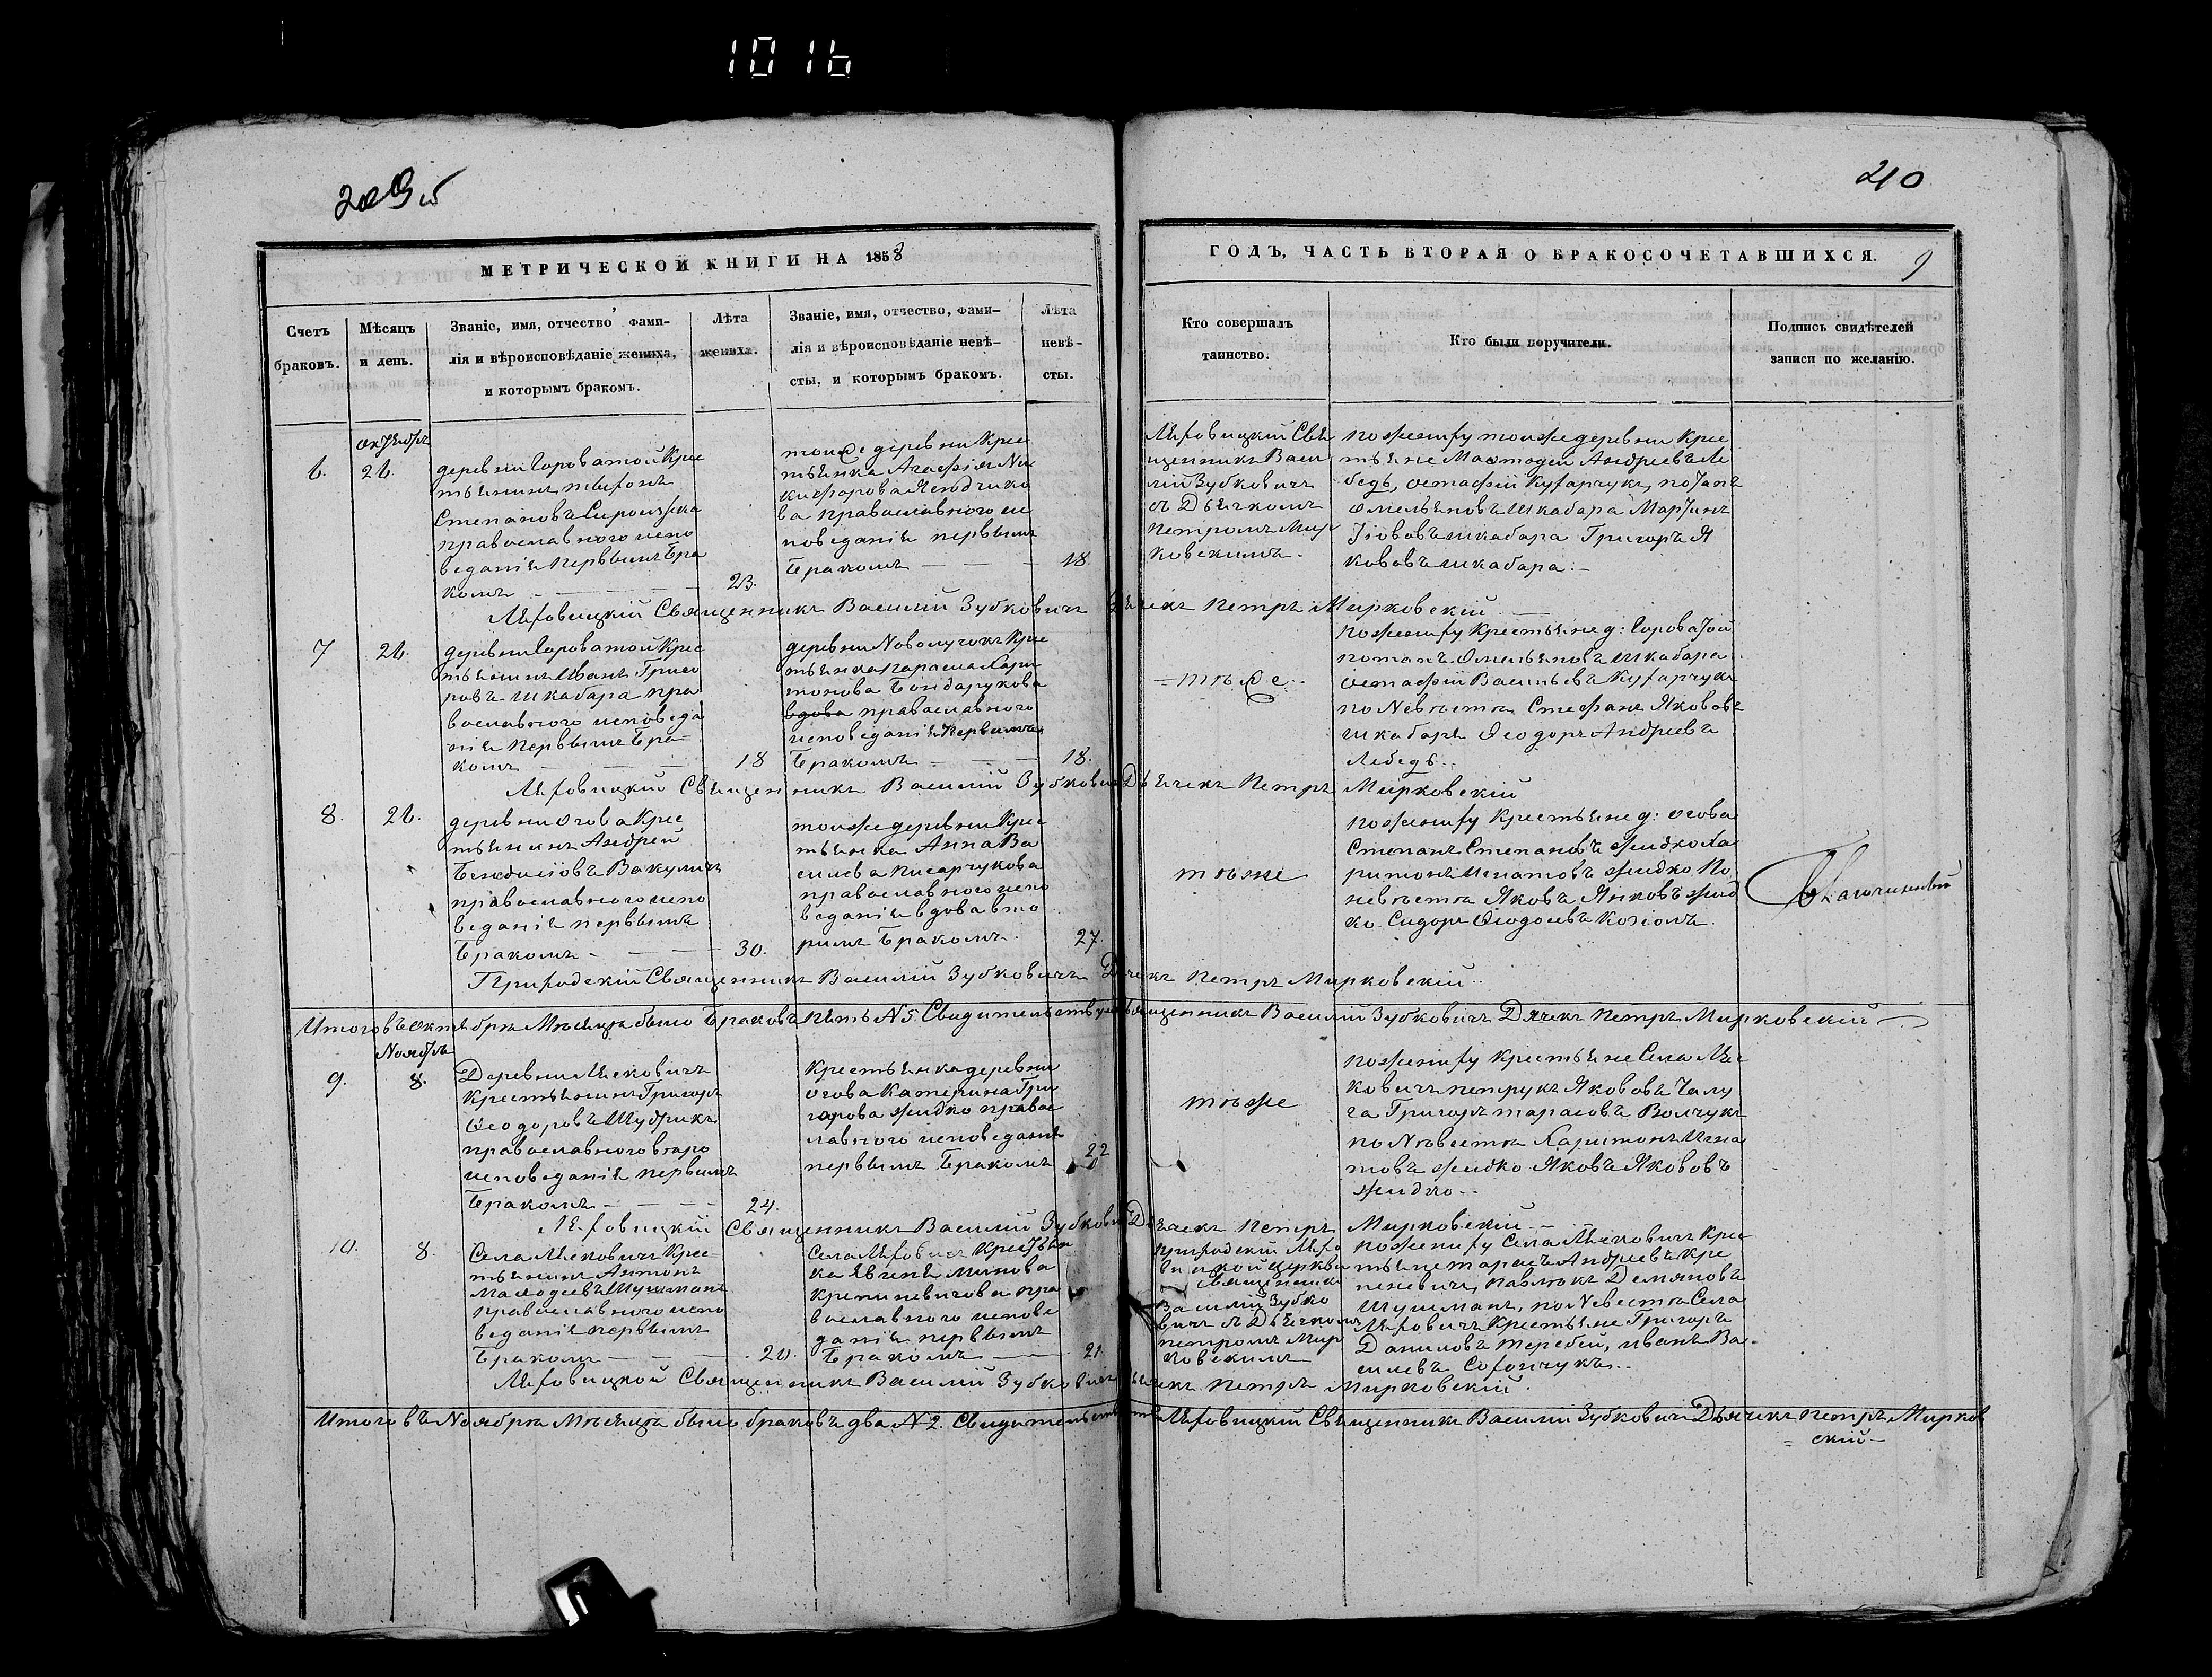 1016
209 б
210
МЕТРИЧЕСКОЙ КНИГИ НА 1858
ГОДЪ, ЧАСТЬ ВТОРАЯ О БРАКОСОЧЕТАВШИХСЯ.
9
Счетъ
браковъ.
Мѣсяцъ
и день.
Званіе, имя, отчество, фами-
лія и вѣроисповѣданіе жениха,
и которымъ бракомъ.
Лѣта
жениха.
Званіе, имя, отчество, фами-
лія и вѣроисповѣданіе невѣ-
сты, и которымъ бракомъ.
Лѣта
невѣ-
сты.
Кто совершалъ
таинство.
Кто были поручители.
Подпись свидѣтелей
записи по желанію.
октебря
6.
26.
деревни Гороватой Крес
тьенинъ
Степановъ
православного испо
веданіе первымъ бра
комъ
23.
тойже деревни Крес
тьенка Агафія Ни
кифорова
ва православного ис
поведаніе первымъ
бракомъ
18
Священникъ Васи
лій Зубковичъ
съ Дьечкомъ
Петромъ Мир
ковскимъ.
по жениху тойже деревни Крес
тьене Андреевъ Ле
бедь, остафій Кухарчукъ,
омельеновъ шкабара Мартинъ
Іововъ шкабара Григоръ Я
кововъ шкабара.
Священникъ Василій Зубковичъ Дьечекъ Петръ Мирковскій
7
26.
деревни Гороватой Крес
тьенинъ Иванъ Григо
ровъ шкабара пра
вославного исповеда
ніе первымъ бра-
комъ
18
деревни Крес
тьенка Параска Хари
тонова Бондарукова
вдова православного
исповеданіе первымъ
бракомъ
18.
тьже
по жениху Крестьене д: Гороватой
потапъ Омельеновъ шкабара
остафій Васильевъ Кухарчукъ
по Невѣстѣ Стефанъ Якововъ
шкабаръ Ѳеодоръ Андреевъ
Лебедь.
Священникъ Василій Зубковичъ Дьечекъ Петръ Мирковскій
8.
26.
деревни Огова Крес
тьенинъ Андрей
Вакуличъ
православного испо
веданіе первымъ
бракомъ
30.
тойже деревни Крес
тьенка Анна Ва
силева Писарчукова
православного испо
веданіе вдова вто
римъ бракомъ.
27.
тоже
по жениху Крестьене д: огова
Степанъ Степановъ жидко Ха
ритонъ Игнатовъ жидко По
невѣстѣ Яковъ Янковъ жид
ко Сидоръ Ѳеодоевъ Козіолъ.
Приходскій Священникъ Василій Зубковичъ Дячекъ Петръ Мирковскій
Итого въ октебрѣ Мѣсяцѣ было браковъ петь N 5. Священникъ Василій Зубковичъ Дячекъ Петръ Мирковскій
Ноября
9.
8.
Деревни
Крестьенинъ Григоръ
Ѳеодоровъ
православного вѣро
исповеданіе первымъ
бракомъ
24.
Крестьенка деревни
огова Катерина Гри
горова жидко право
славного исповеданіе
первымъ бракомъ
22
тоже
по жениху Крестьене Села
ковичъ петрукъ Якововъ
Григоръ тарасовъ Волчукъ
по Невѣстѣ Харитонъ Игна
товъ жидко Яковъ Якововъ
жидко
Священникъ Василій Зубковичъ Дьечекъ Петръ Мирковскій
10.
8.
Села Крес-
тьенинъ Антонъ
православного испо
веданіе первымъ
бракомъ
20.
Села Крестьен
ка
православного испове
даніе первымъ
бракомъ
21.
Приходскій
церкви
Священникъ
Василій Зубко
вичъ съ Дьечкомъ
петромъ Мир
ковскимъ
по жениху Села Крес
тьене тарасъ Андреевъ Кре
Павлюкъ Демяновъ
по Невѣстѣ Села
Крестьене Григоръ
Даниловъ теребій, иванъ Ва-
силевъ
Священникъ Василій Зубковичъ Дьечекъ Петръ Мирковскій.
Итого въ Ноябрѣ Мѣсяцѣ было браковъ два N 2. Священникъ Василій Зубковичъ Дьячекъ Петръ Мирков
скій